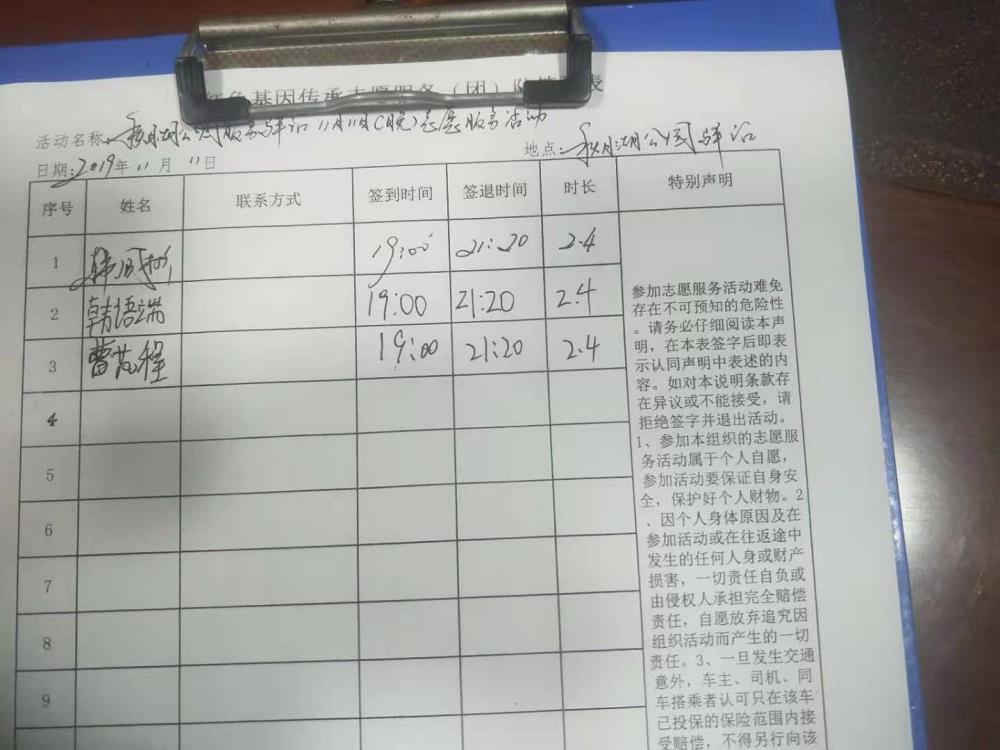 色基因传承志愿服务（团）队签 表
活动名称：秋月湖公园服务驿站11月11日（晚）志愿服务活动
地点：秋月湖公园驿站
日期：2019年11月11日
序号 姓名 联系方式 签到时间 签退时间 时长 特别声明
1 19:00 21:20 2.4
2 韩语端 19:00 21:20 2.4
3 曹芃程 19:00 21:20 2.4
4
5
6
7
8
9
参加志愿服务活动难免
存在不可预知的危险性
。请务必仔细阅读本声
明，在本表签字后即表
示认同声明中表述的内
容。如对本说明条款存
在异议或不能接受，请
拒绝签字并退出活动。
1、参加本组织的志愿服
务活动属于个人自愿，
参加活动要保证自身安
全，保护好个人财物。2
、因个人身体原因及在
参加活动或在往返途中
发生的任何人身或财产
损害，一切责任自负或
由侵权人承担完全赔偿
责任，自愿放弃追究因
组织活动而产生的一切
责任。3、一旦发生交通
意外，车主、司机、同
车搭乘者认可只在该车
已投保的保险范围内接
受赔偿，不得另行向该